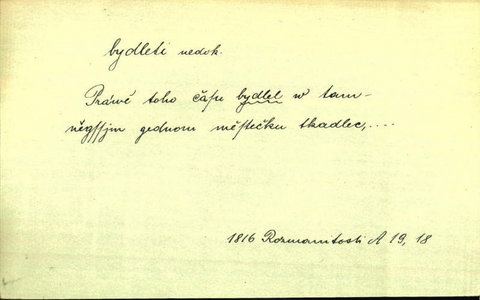 bydleti nedok.
Práwě toho čásu bydlel w tam-
něgssjm gednom městečku tkadlec,....
1816 Rozmanitosti A 19, 18